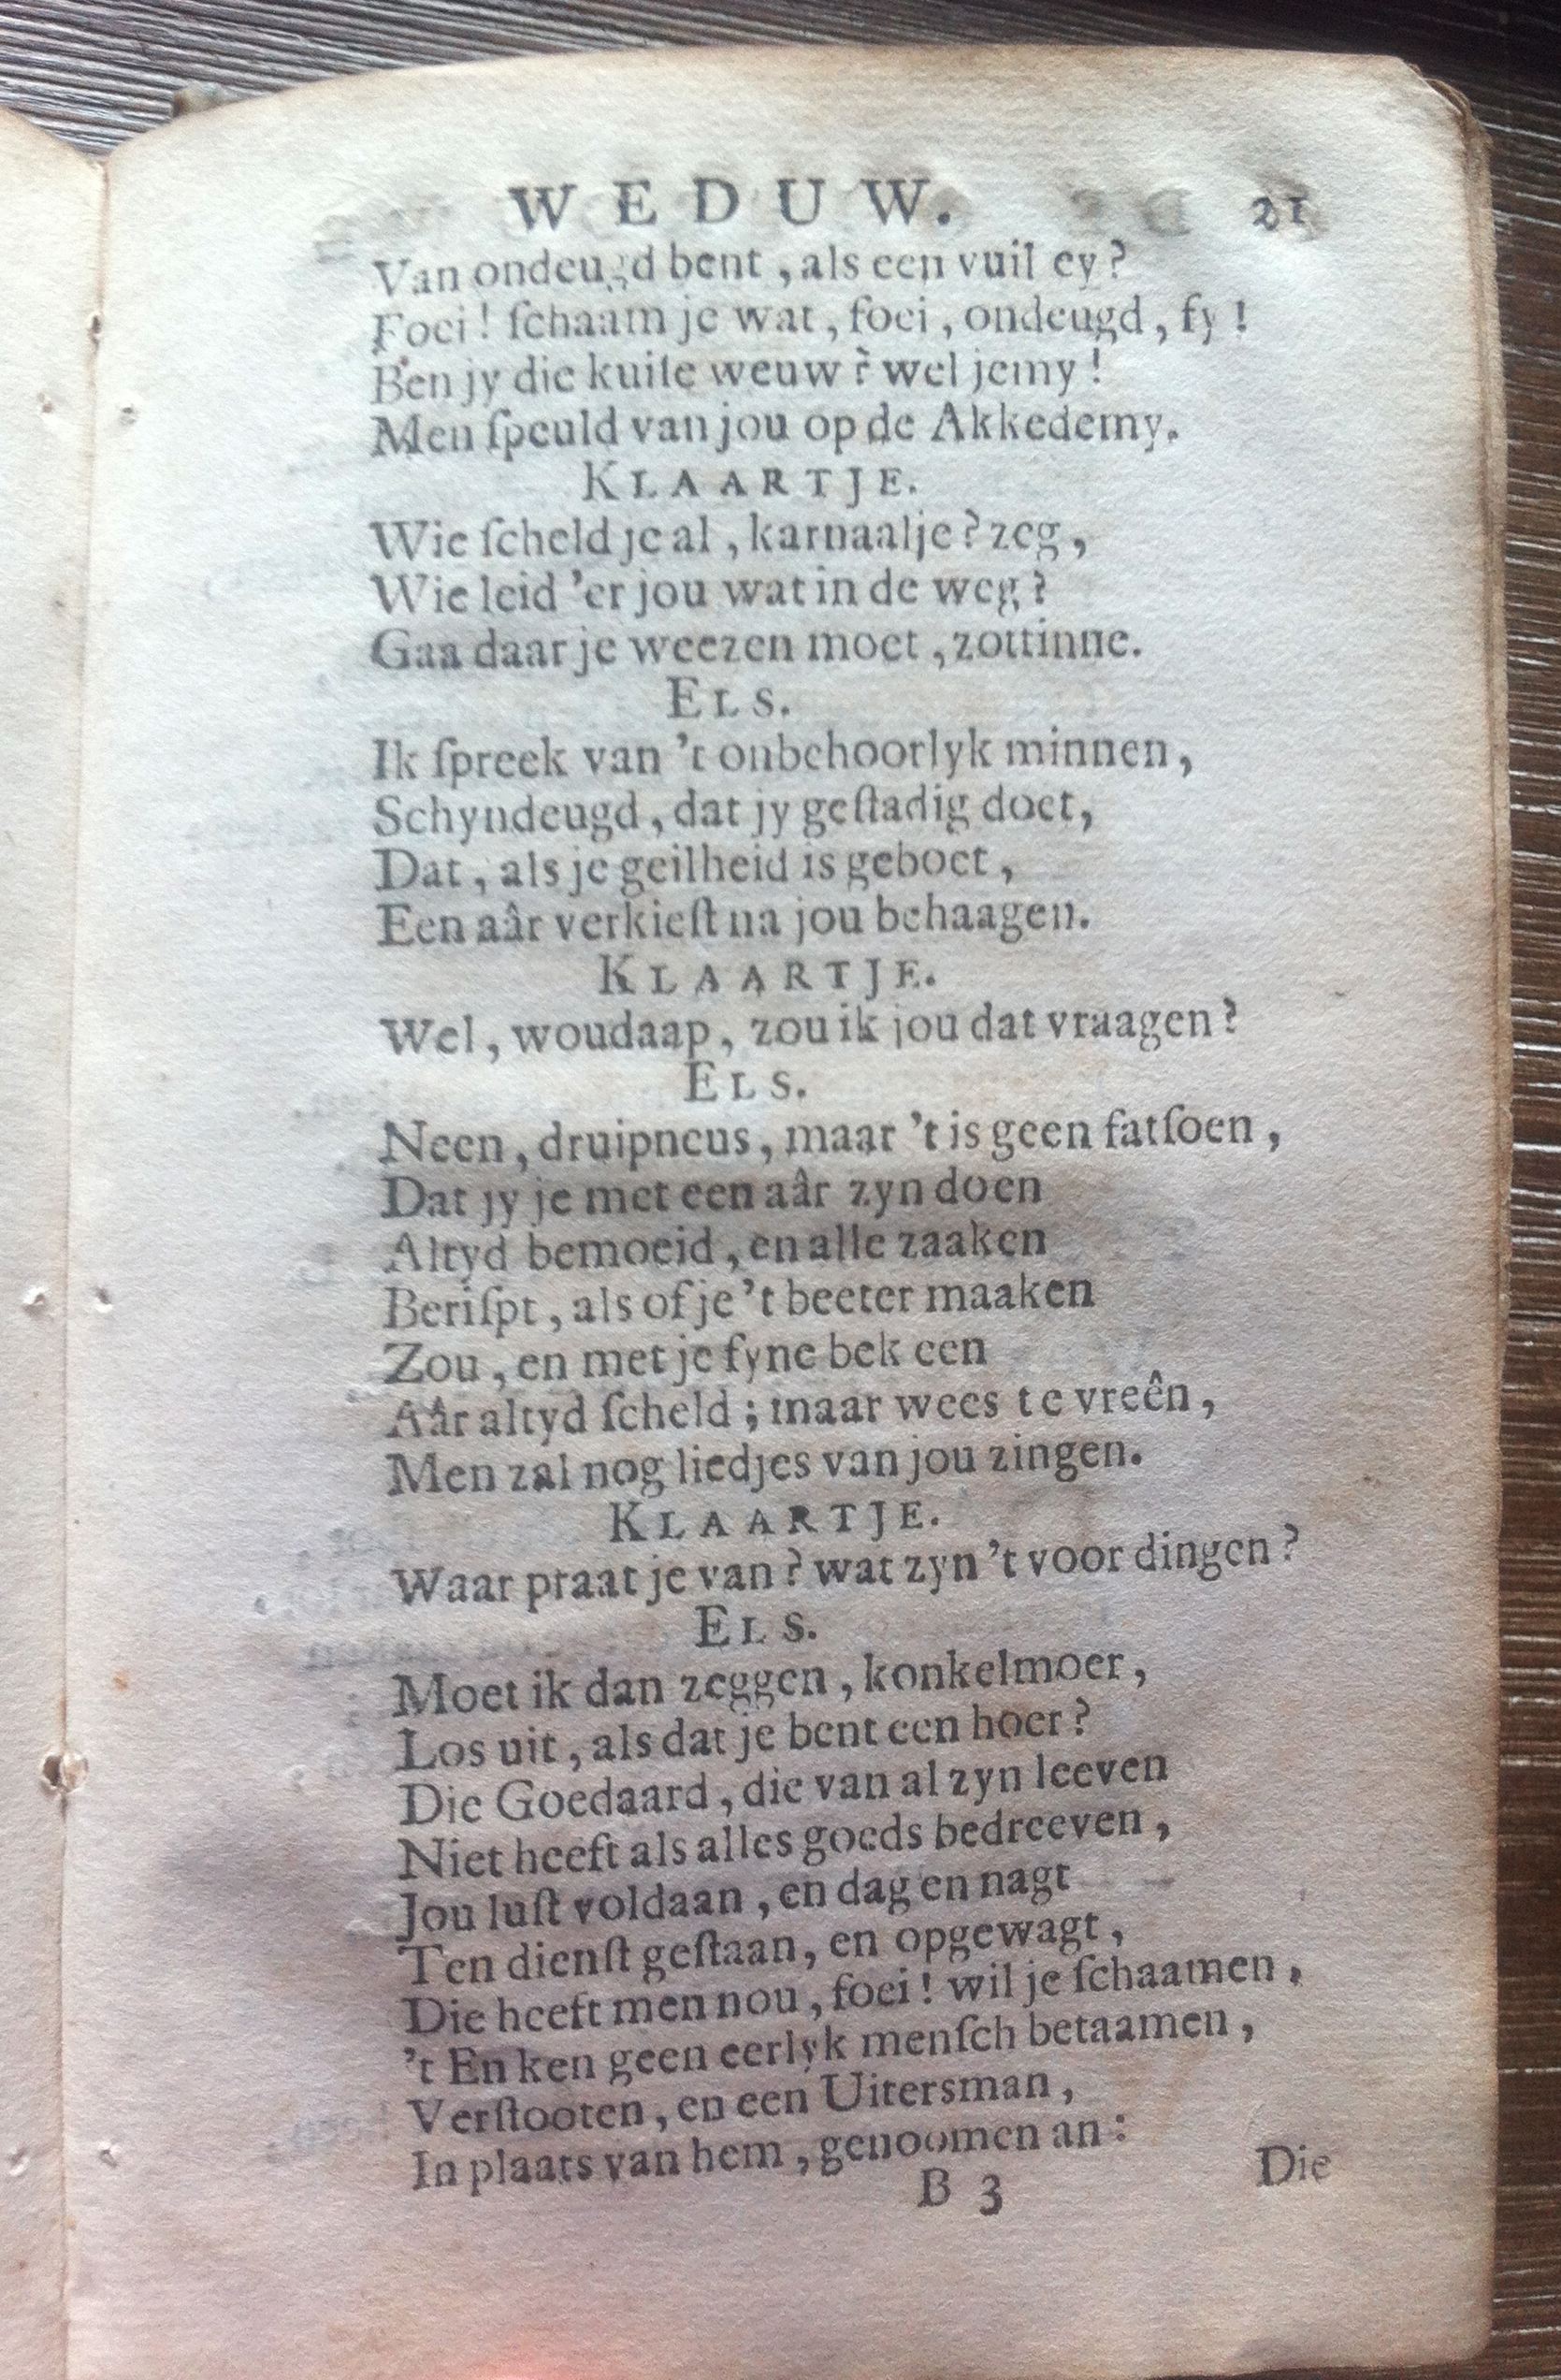 WEDUW. 21
Van ondeugd bent, als een vuil ey?
Foei! ſchaam je wat, foei, ondeugd, fy!
Ben jy die kuiſe weuw? wel jemy!
Men ſpeuld van jou op de Akkedemy.
KLAARTJE.
Wie ſcheld je al, karnaalje? zeg,
Wie leid 'er jou wat in de weg?
Gaa daar je weezen moet, zottinne.
ELS.
Ik ſpreek van 't onbehoorlyk minnen,
Schyndeugd, dat jy geſtadig doet,
Dat, als je geilheid is geboet,
Een aâr verkieſt na jou behaagen.
KLAARTJE.
Wel, woudaap, zou ik jou dat vraagen?
ELS.
Neen, druipneus, maar 't is geen fatſoen,
Dat jy je met een aâr zyn doen
Altyd bemoeid, en alle zaaken
Beriſpt, als of je 't beeter maaken
Zou, en met je fyne bek een
Aâr altyd ſcheld; maar wees te vreên,
Men zal nog liedjes van jou zingen.
KLAARTJE.
Waar praat je van? wat zyn 't voor dingen?
ELS.
Moet ik dan zeggen, konkelmoer,
Los uit, als dat je bent een hoer?
Die Goedaard, die van al zyn leeven
Niet heeft als alles goeds bedreeven,
Jou luſt voldaan, en dag en nagt
Ten dienſt geſtaan, en opgewagt,
Die heeft men nou, foei! wil je ſchaamen,
't En ken geen eerlyk menſch betaamen,
Verſtooten, en een Uitersman,
In plaats van hem, genoomen an:
B 3 Die